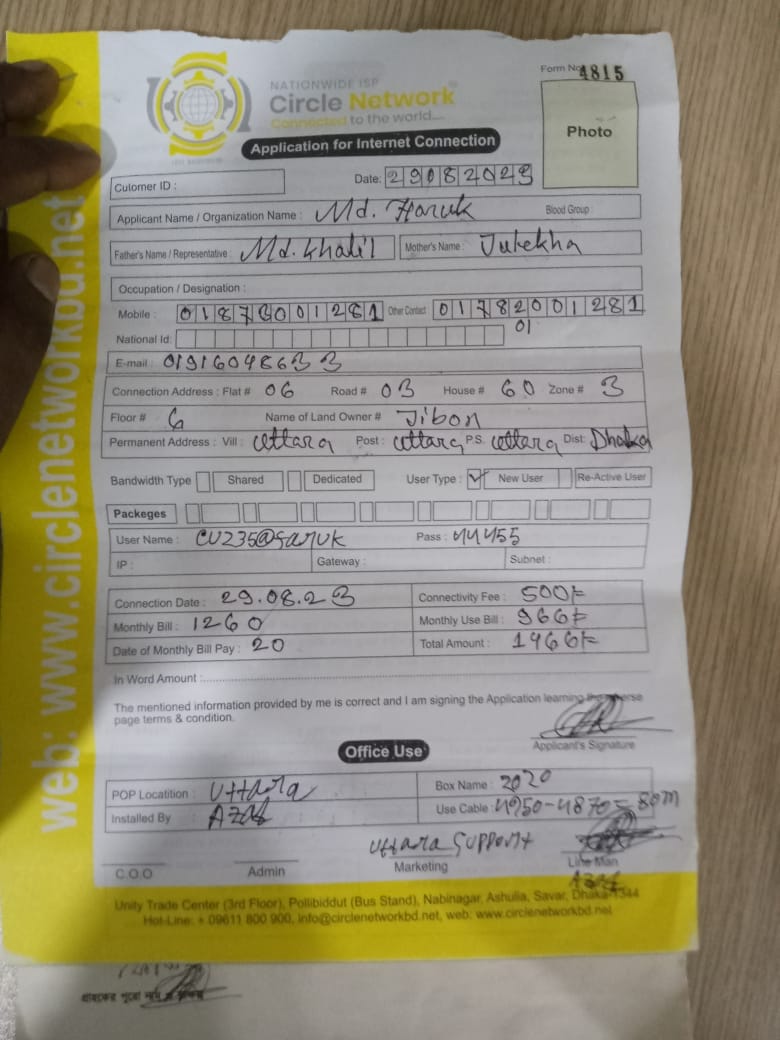 NATIONWIDE ISP
Circle Network
Connected to the world....
Form No 4815
Application for Internet Connection
Photo
Culomer ID :
Date: 29082023
Applicant Name / Organization Name : Md. Faruk Blood Group :
Father's Name / Representative : Md. Khalil Mother's Name : Julekha
Occupation / Designation :
Mobile : Other Contact : 01782001281
01
National Id:
E-mail : 01916048633
Connection Address : Flat # 06 Road # 03 House # 60 Zone # 3
Floor # 6 Name of Land Owner # Jibon
Permanent Address : Vill : uttara Post : uttara P.S. uttara Dist: Dhaka
Bandwidth Type Shared Dedicated User Type : ✓ New User Re-Active User
Packeges
User Name : CU235@faruk Pass :
IP : Gateway : Subnet :
Connection Date : 29.08.23 Connectivity Fee : 500/=
Monthly Bill : 1260 Monthly Use Bill : 966/=
Date of Monthly Bill Pay : 20 Total Amount : 1466/=
In Word Amount :
The mentioned information provided by me is correct and I am signing the Application learning the reverse
page terms & condition.
Applicant's Signature
Office Use
POP Locatition : Uttara Box Name : 2020
Installed By Use Cable : 4950-4870= 80m
Uttara Support
C.O.O Admin Marketing Line Man
Unity Trade Center (3rd Floor), Pollibiddut (Bus Stand), Nabinagar, Ashulia, Savar, Dhaka-1344
Hot-Line: + 09611 800 900, info@circlenetworkbd.net, web: www.circlenetworkbd.net
web: www.circlenetworkbd.net
গ্রাহকের পুরো নাম